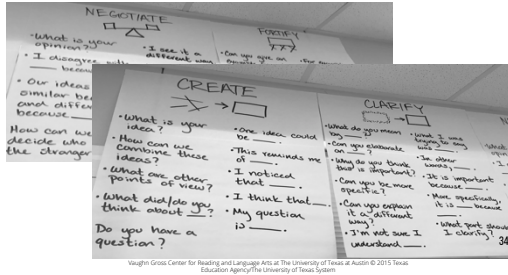 NEGOTIATE
FORTIFY
• What is your
opinion?
• I disagree
becau
• Our ideas
similar be
and diffe
because
How can we
decide who
the stronger
• I see it a
different way
• Can you give an
CREATE
• What is your
idea?
• How can we
combine these
ideas?
• What are other
points of view?
• What did/do you
think about __?
Do you have a
question?
• One idea could
be ___.
• This reminds me
of ___.
• I noticed
that ___.
• I think that ___.
• My question
is ___.
CLARIFY
• What do you mean
by __?
• Can you elaborate
on __?
• Why do you think
this is important?
• Can you be more
specific?
• Can you explain
it a different
way?
• I'm not sure I
understand ___.
• What I was
trying to say
was
• In other
words,
• It is important
because ___.
• More specifically,
it is ___ because
• What part should
I clarify?
34
Vaughn Gross Center for Reading and Language Arts at The University of Texas at Austin © 2015 Texas
Education Agency/The University of Texas System